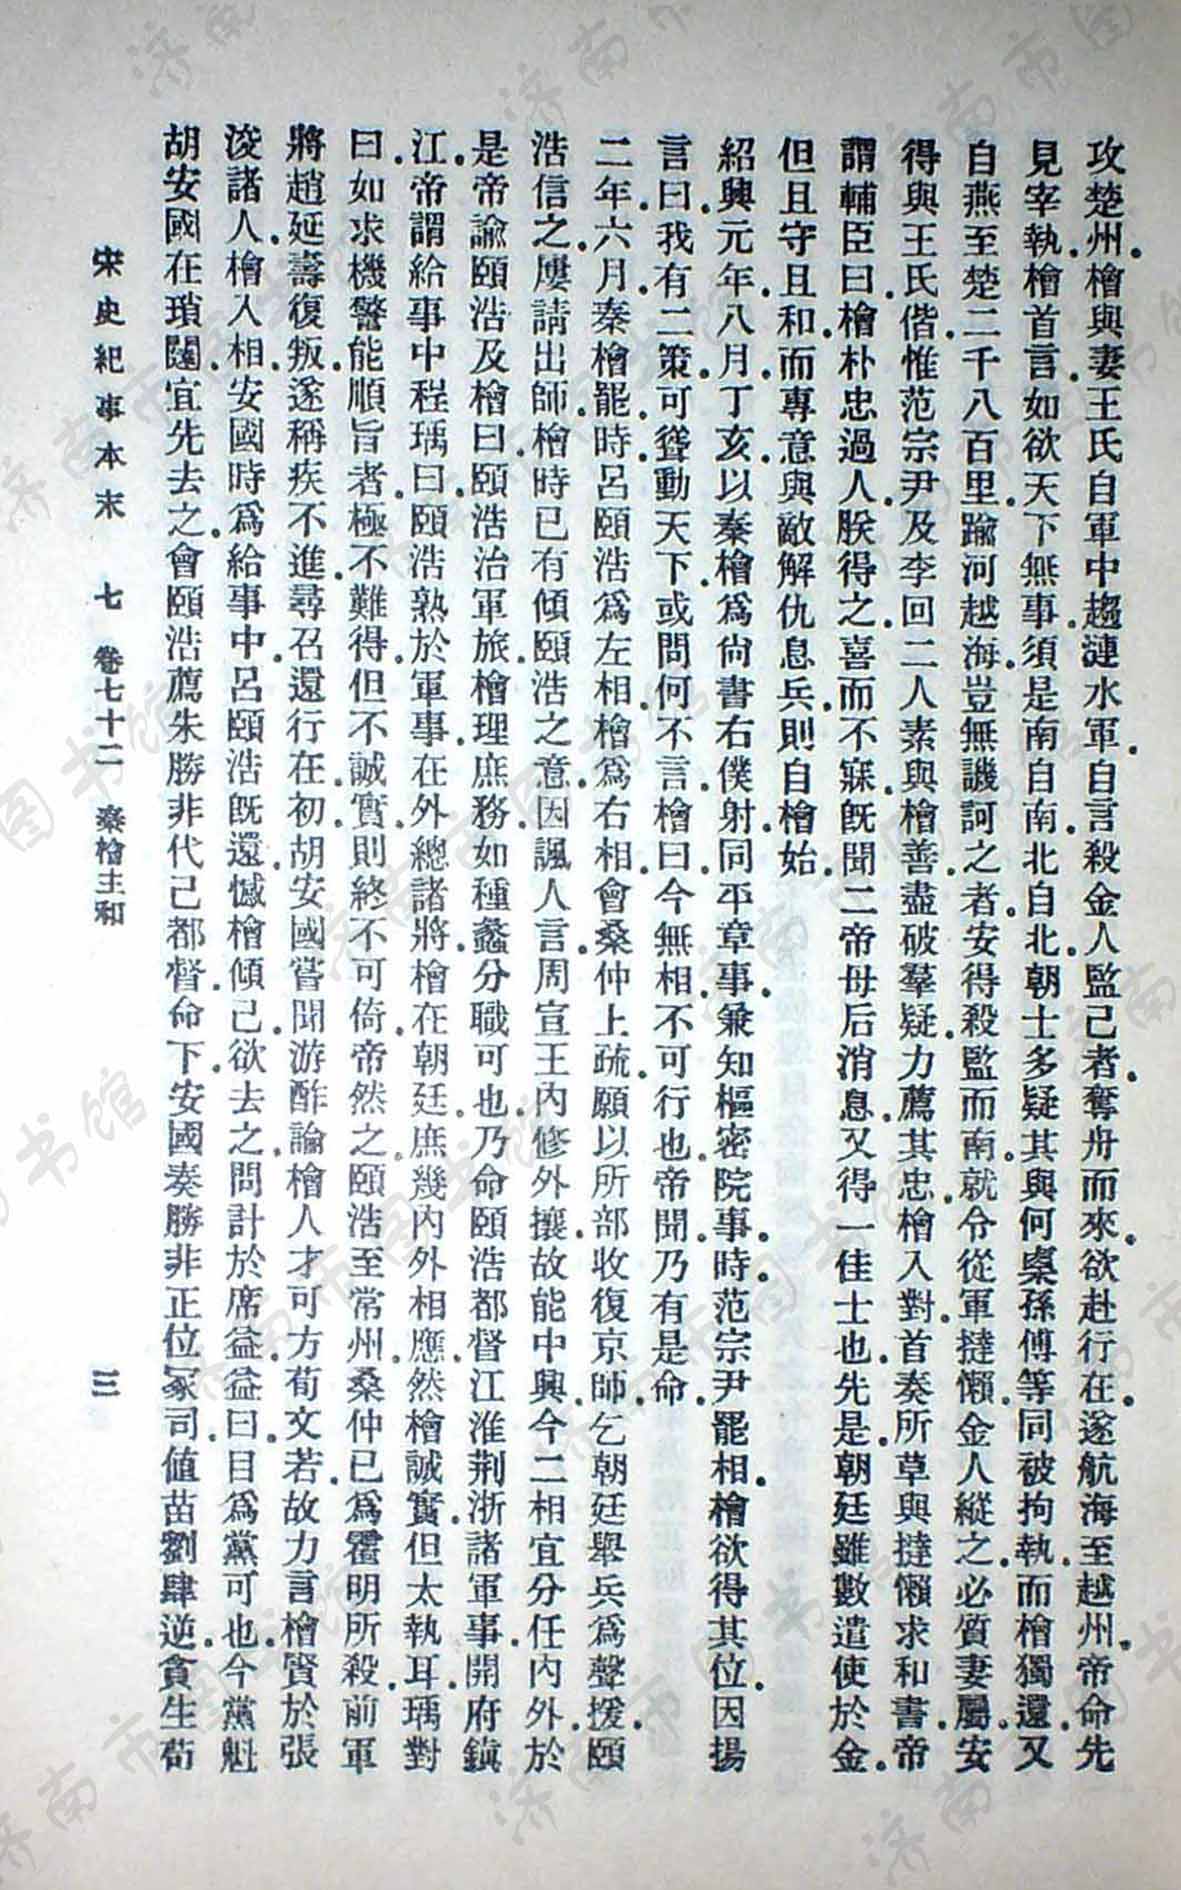 攻楚州.檜與妻王氏自軍中趨漣水軍.自言殺金人監己者.奪舟而來.欲赴行在.遂航海至越州.帝命先
見宰執.檜首言如欲天下無事.須是南自南.北自北.朝士多疑其與何㮚孫傅等同被拘執.而檜獨還.又
自燕至楚二千八百里.踰河越海.豈無譏訶之者.安得殺監而南.就令從軍撻懶.金人縱之.必質妻屬.安
得與王氏偕.惟范宗尹及李回二人素與檜善.盡破羣疑.力薦其忠.檜入對.首奏所草與撻懶求和書.帝
謂輔臣曰.檜朴忠過人.朕得之.喜而不寐.既聞二帝母后消息.又得一佳士也.先是朝廷雖數遣使於金.
但且守且和.而專意與敵解仇息兵.則自檜始.
紹興元年.八月.丁亥.以秦檜爲尙書右僕射.同平章事.兼知樞密院事.時.范宗尹罷相.檜欲得其位.因揚
言曰.我有二策.可聳動天下.或問何不言.檜曰.今無相.不可行也.帝聞.乃有是命.
二年.六月.秦檜罷.時.呂頤浩爲左相.檜爲右相.會桑仲上疏.願以所部收復京師.乞朝廷舉兵爲聲援.頤
浩信之.屢請出師.檜時已有傾頤浩之意.因諷人言.周宣王內修外攘.故能中興.今二相宜分任內外.於
是帝諭頤浩及檜曰.頤浩治軍旅.檜理庶務.如種蠡分職可也.乃命頤浩都督江淮荆浙諸軍事.開府鎮
江.帝謂給事中程瑀曰.頤浩熟於軍事.在外總諸將.檜在朝廷.庶幾內外相應.然檜誠實.但太執耳.瑀對
曰.如求機警.能順旨者.極不難得.但不誠實.則終不可倚.帝然之.頤浩至常州.桑仲已爲霍明所殺.前軍
將趙延壽復叛.遂稱疾不進.尋召還行在.初.胡安國嘗聞游酢論檜人才可方荀文若.故力言檜賢於張
浚諸人.檜入相.安國時爲給事中.呂頤浩既還.憾檜傾己.欲去之.問計於席益.益曰.目爲黨可也.今黨魁
胡安國在瑣闥.宜先去之.會頤浩薦朱勝非代己都督.命下.安國奏勝非正位冢司.値苗劉肆逆.貪生苟
宋史紀事本末　七　卷七十二　秦檜主和　三
濟南市图书馆